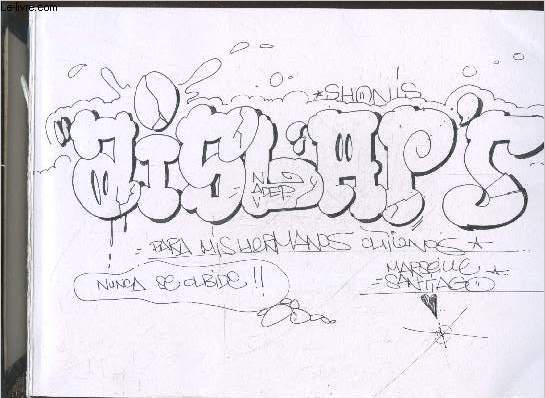 Le-livre.com
*SHONIS
"AISLAP'S
N
ADEP
- PARA MIS HERMANOS CHILENOS *
NUNCA SE OLBIDE !!
MARSEILLE *
= SANTIAGO